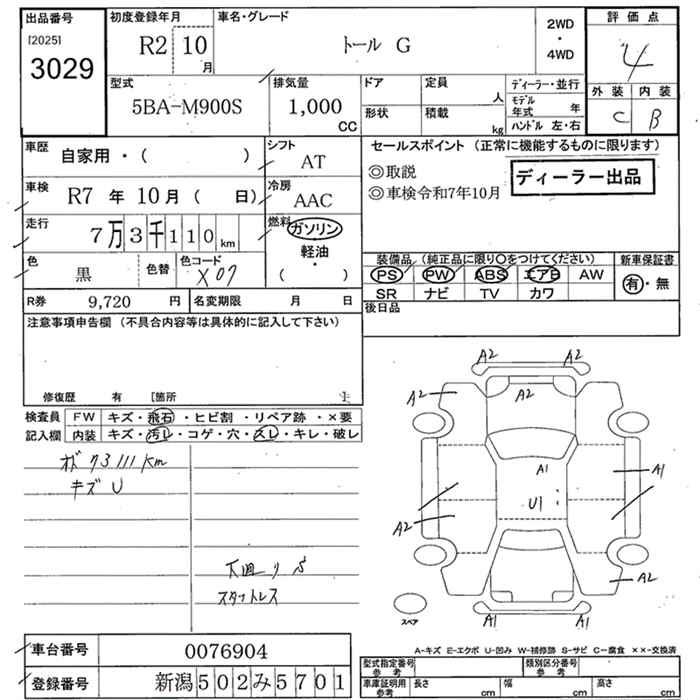 出品番号
[2025]
3029
初度登録年月
R2 10 月
車名・グレード
トール G
2WD
・
4WD
評価点
4
外装 内装
C B
型式
5BA-M900S
排気量
1,000
CC
ドア
形状
定員
人
積載
kg
ディーラー・並行
モデル年式 年
ハンドル 左・右
車歴
自家用・( )
シフト
AT
車検
R7 年 10 月 ( 日)
冷房
AAC
走行
7万3千110km
燃料
ガソリン
軽油
( )
色
黒
色替
色コード
X07
R券 9,720 円
名変期限 月 日
セールスポイント (正常に機能するものに限ります)
◎取説
◎車検令和7年10月
ディーラー出品
装備品 (純正品に限り○をつけてください)
PS PW ABS エアB AW
SR ナビ TV カワ
新車保証書
有・無
後日品
注意事項申告欄 (不具合内容等は具体的に記入して下さい)
修復歴 有 [箇所
検査員
記入欄
FW キズ・飛石・ヒビ割・リペア跡・×要
内装 キズ・汚レ・コゲ・穴・スレ・キレ・破レ
73111km
キズ U
下廻り S
スタットレス
A2 A2
A2 A2
A1 A1
U1
A2
A2
A2 A2
スペア
A-キズ E-エクボ U-凹み W-補修跡 S-サビ C-腐食 ××-交換済
車台番号 0076904
登録番号 新潟502み5701
型式指定番号
参考
類別区分番号
参考
車庫証明用
参考
長さ cm
幅 cm
高さ cm